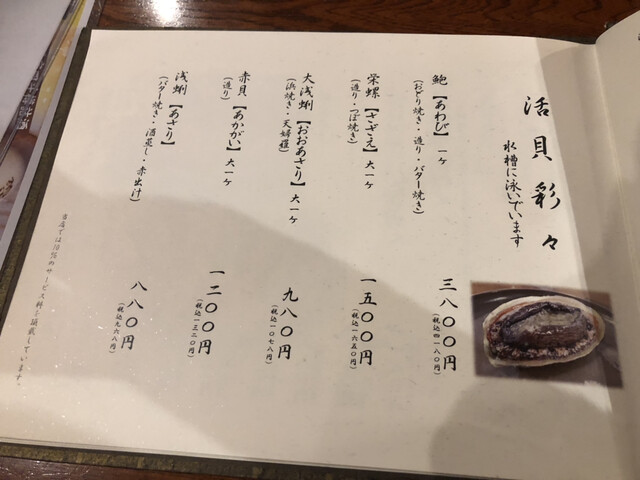 活貝彩々
水槽に泳いでいます
鮑【あわび】一ヶ
(おどり焼き・造り・バター焼き)
三八〇〇円
(税込四一八〇円)
栄螺【さざえ】大一ヶ
(造り・つぼ焼き)
一五〇〇円
(税込一六五〇円)
大浅蜊【おおあさり】大一ヶ
(浜焼き・天婦羅)
九八〇円
(税込一〇七八円)
赤貝【あかがい】大一ヶ
(造り)
一二〇〇円
(税込一三二〇円)
浅蜊【あさり】
(バター焼き・酒蒸し・赤出汁)
八八〇円
(税込九六八円)
当店では10%のサービス料を頂戴しています。